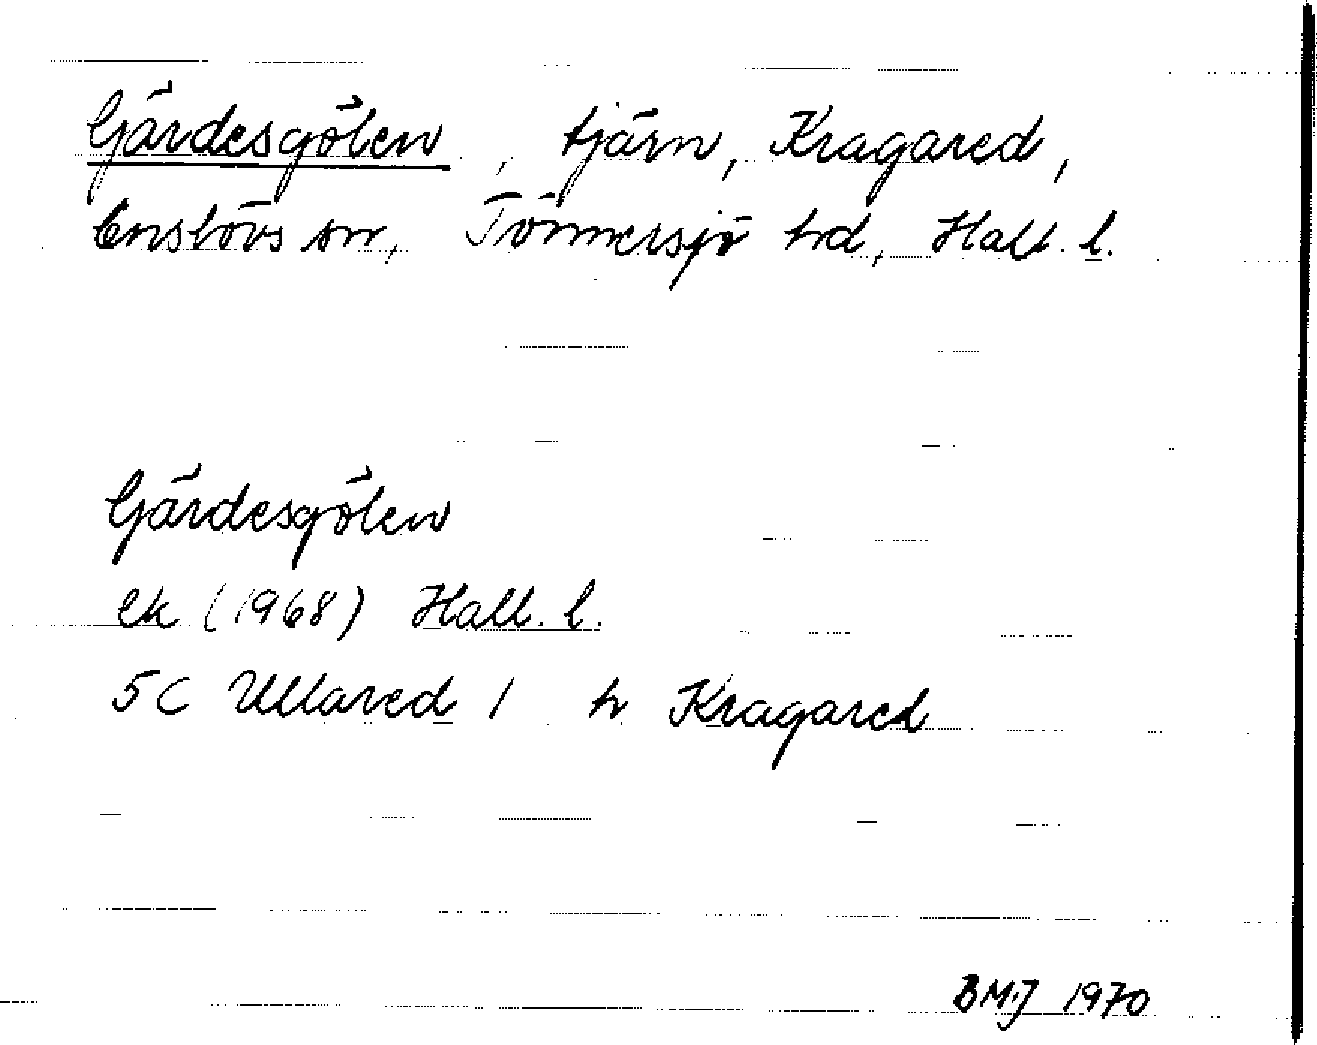 Gärdesgölen, tjärn, Kragared,
Enslövs sn, Tönnersjö hd, Hall. l.
Gärdesgölen
ek (1968) Hall. l.
5C Ullared 1 h Kragared
BMJ 1970